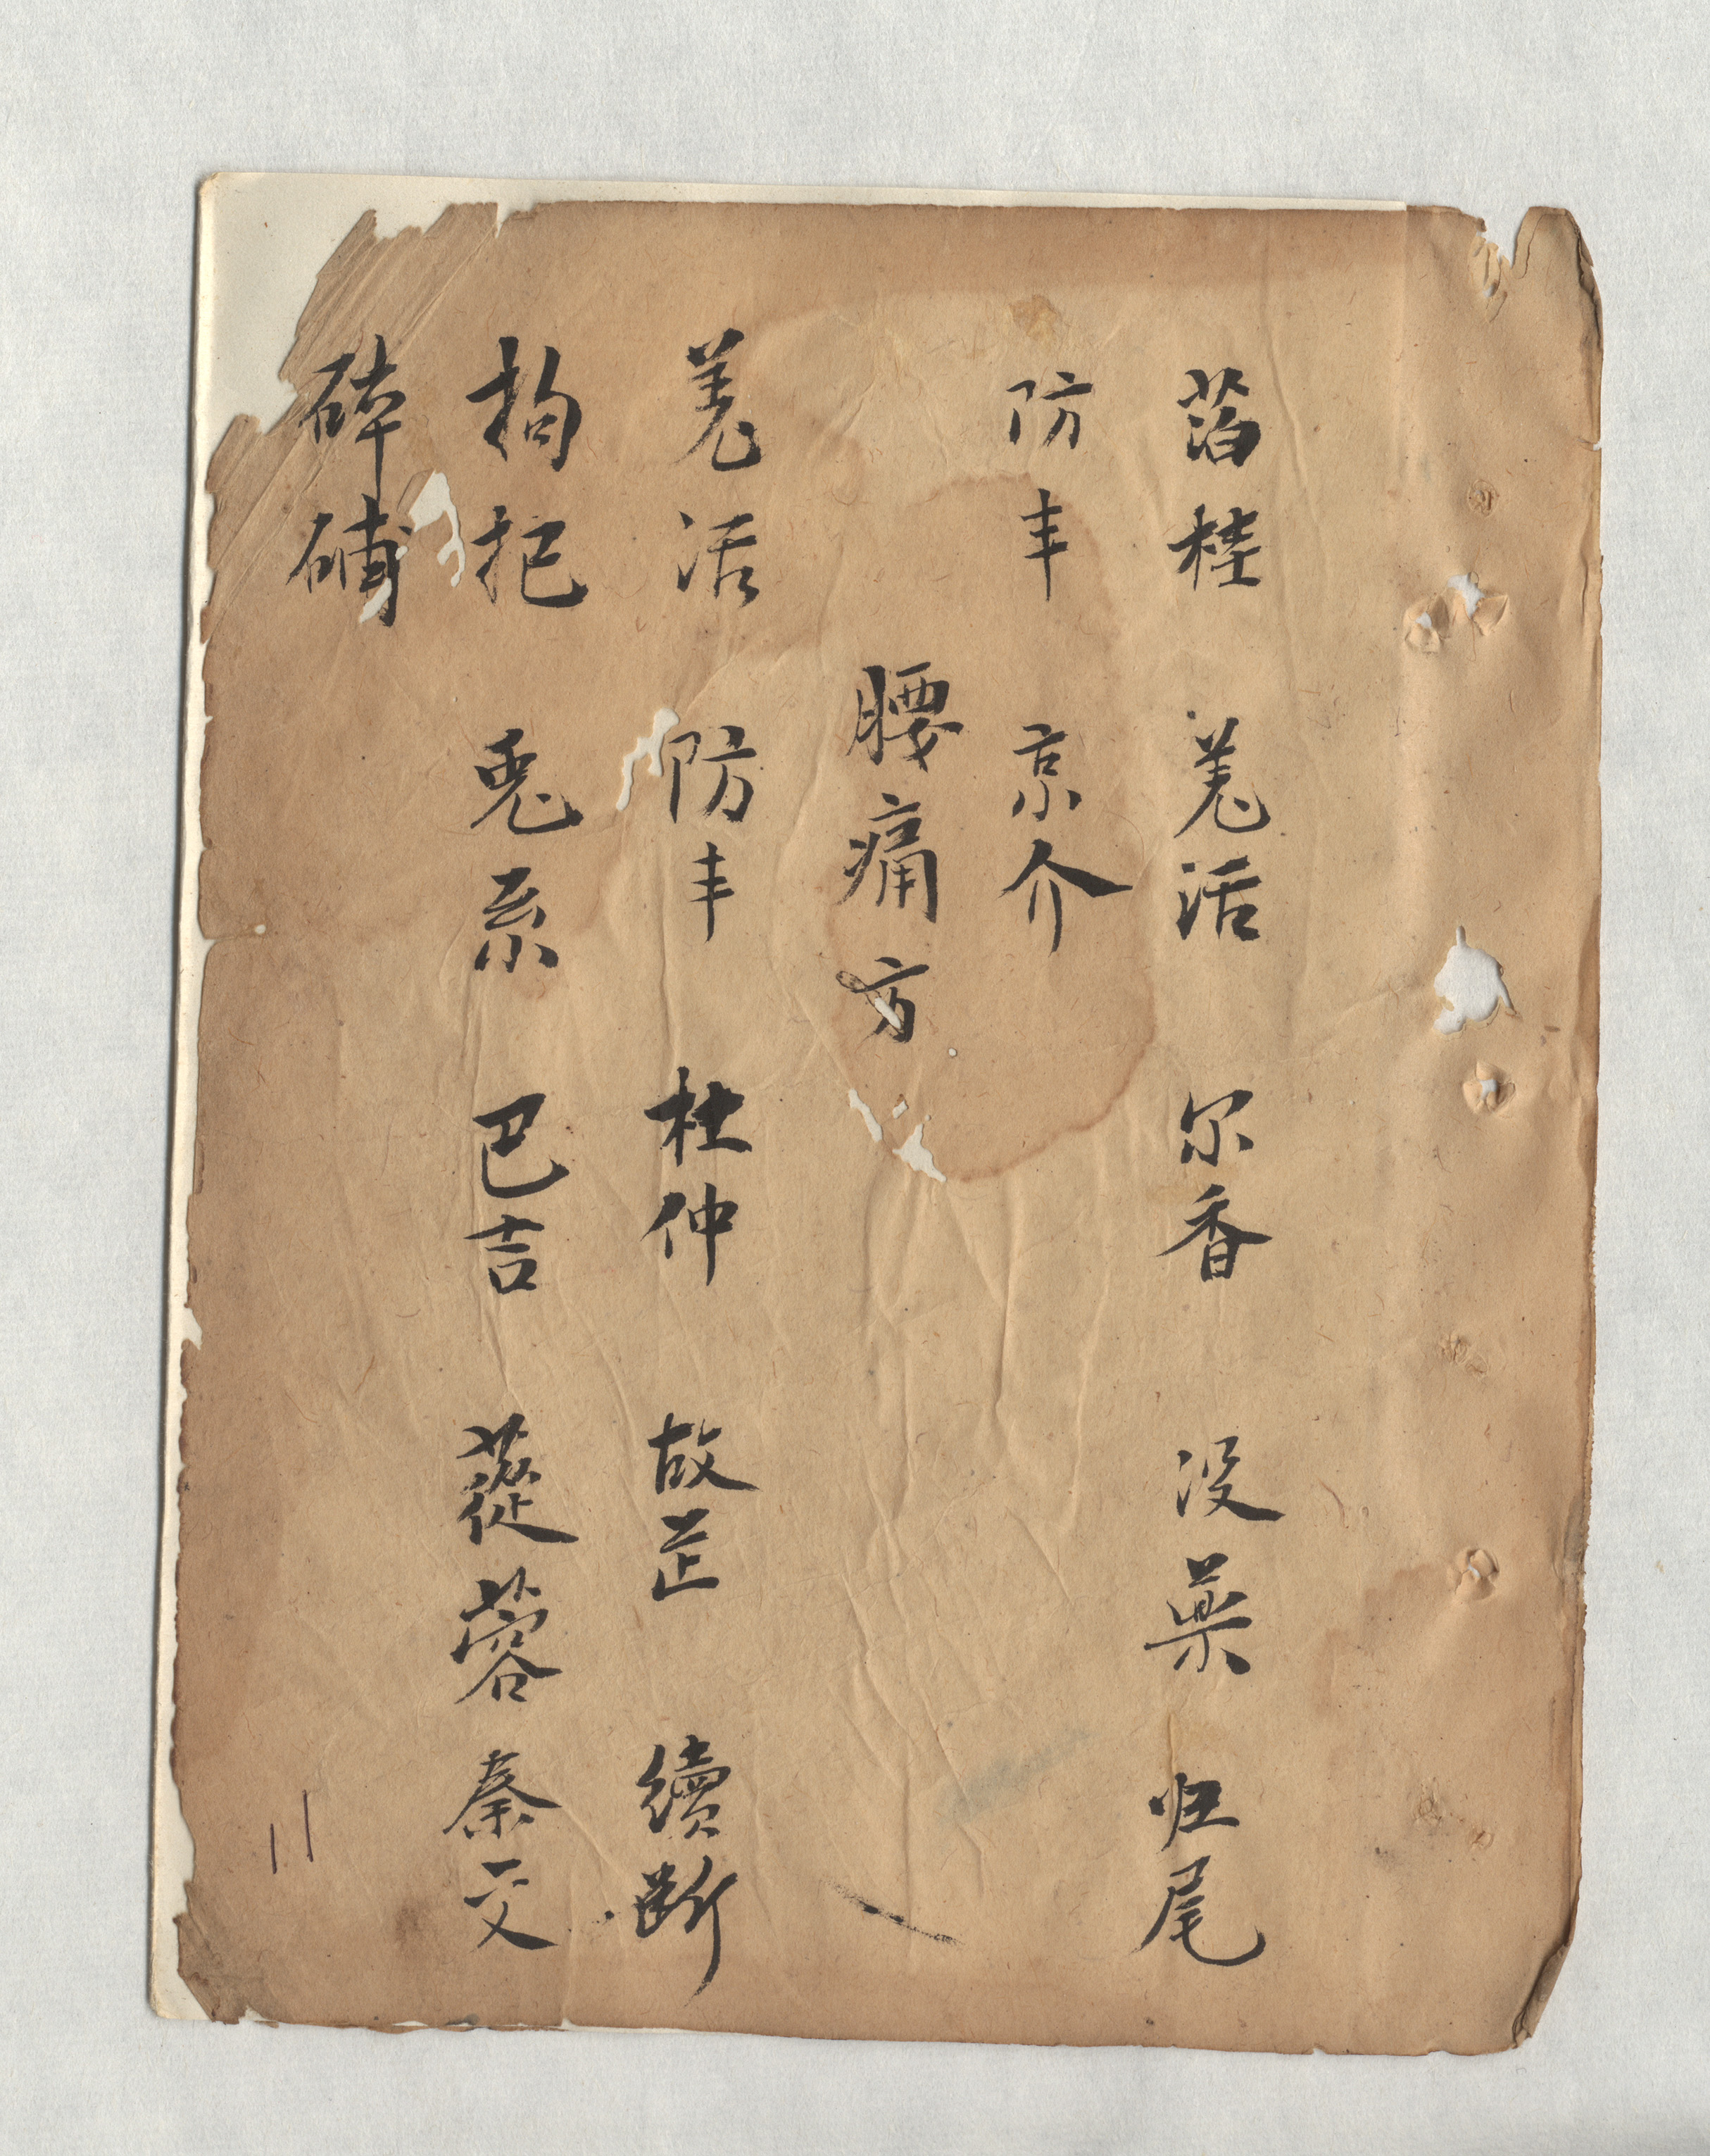 箔桂 羌活 尔香 没薬 归尾
防丰 京介
腰痛方
羌活 防丰 杜仲 故芷 續断
枸杞 兎系 巴吉 蓯蓉 秦交
碎補